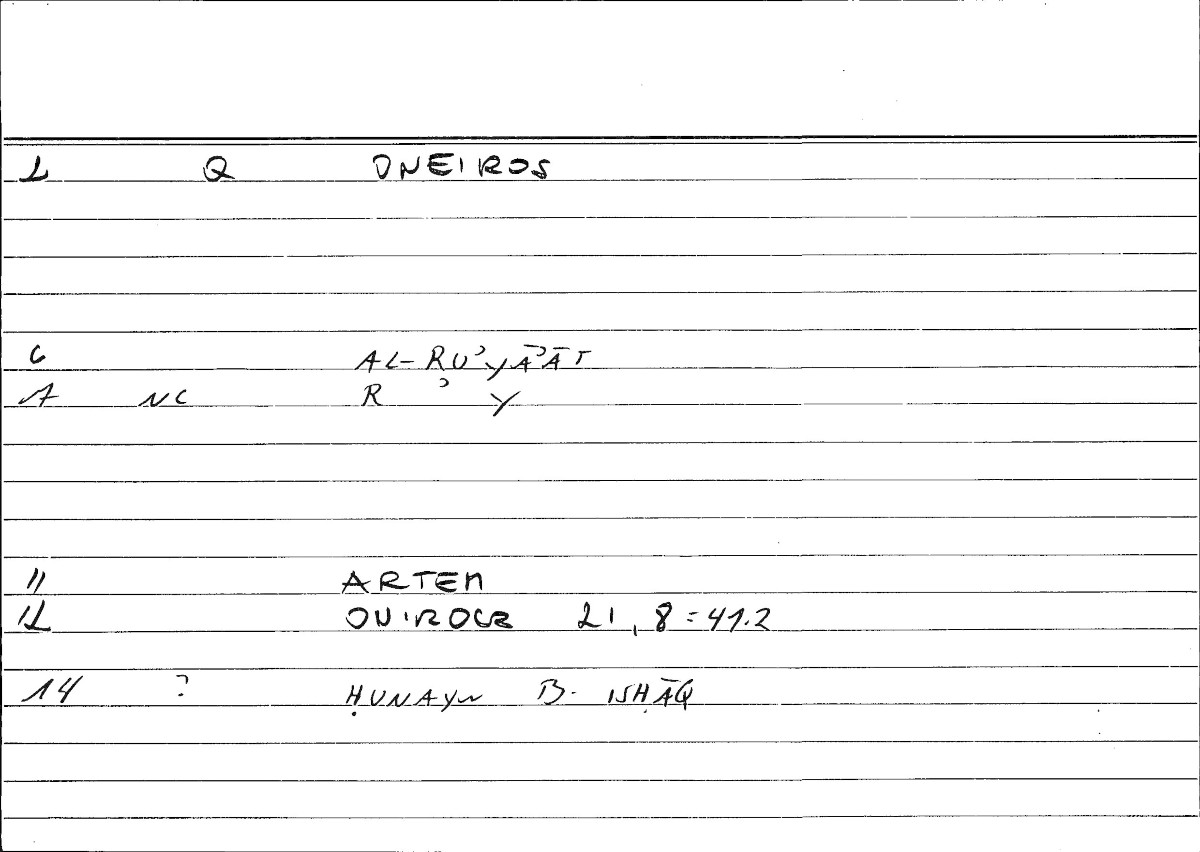 1 Q ONEIROS
6 AL-RUʾYĀʾĀT
7 NC R ʾ Y
11 ARTEM
12 ONIROCR 21,8=41.2
14 ? ḤUNAYN B. ISḤĀQ